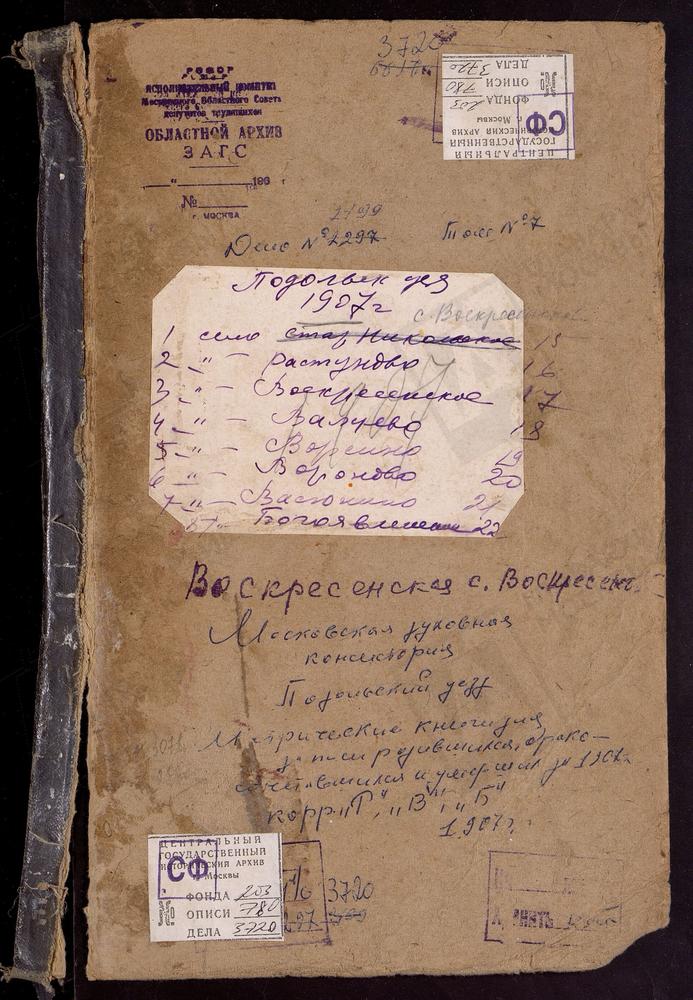 3720
РСФСР
ИСПОЛНИТЕЛЬНЫЙ КОМИТЕТ
Московского Областного Совета
депутатов трудящихся
ОБЛАСТНОЙ АРХИВ
ЗАГС
"
196 г
№
г. МОСКВА
ЦЕНТРАЛЬНЫЙ
ГОСУДАРСТВЕННЫЙ
ИСТОРИЧЕСКИЙ АРХИВ
Москвы
СФ
ФОНДА 203
ОПИСИ 780
ДЕЛА 3720
Дело № 2297
Том № 7
Подольск уез
1907 г
с. Воскресенское
1 село стар Никольское 15
2 -"- растуново 16
3 -"- Воскресенское 17
4 -"- Валуево 18
5 -"- Ворсино 19
6 -"- Вороново 20
7 -"- Васюнино 21
Богоявление 22
1907
Воскресенская с. Воскресенс.
Московская духовная
консистория
Подольский уезд
Метрические книги для
записи родившихся, брако-
сочетавшихся и умерших за 1907г.
корр "Г", "В", "Б"
1907г.
ЦЕНТРАЛЬНЫЙ
ГОСУДАРСТВЕННЫЙ
ИСТОРИЧЕСКИЙ АРХИВ
Москвы
СФ
ФОНДА 203
ОПИСИ 780
ДЕЛА 3720
3720
ХРАНИТЬ